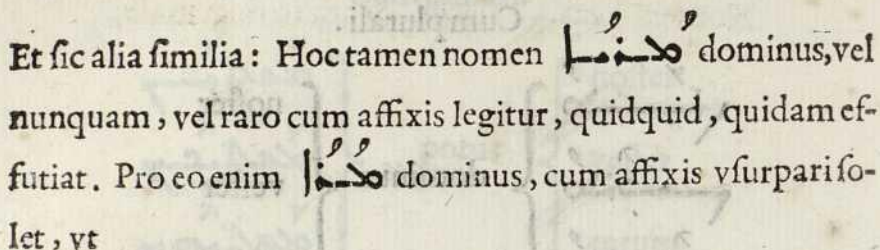 Et ſic alia ſimilia: Hoc tamen nomen ܡܳܪܝܳܐ dominus, vel
nunquam, vel raro cum affixis legitur, quidquid, quidam ef-
futiat. Pro eo enim ܡܳܪܳܐ dominus, cum affixis vſurpari ſo-
let, vt